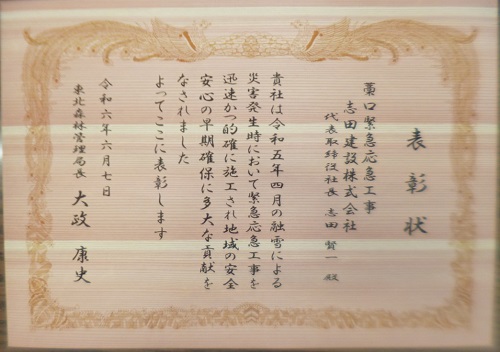 表彰状
藁口緊急応急工事
志田建設株式会社
代表取締役社長 志田 賢一 殿
貴社は令和五年四月の融雪による
災害発生時において緊急応急工事を
迅速かつ的確に施工され地域の安全
安心の早期確保に多大な貢献を
なされました
よってここに表彰します
令和六年六月七日
東北森林管理局長 大政 康史